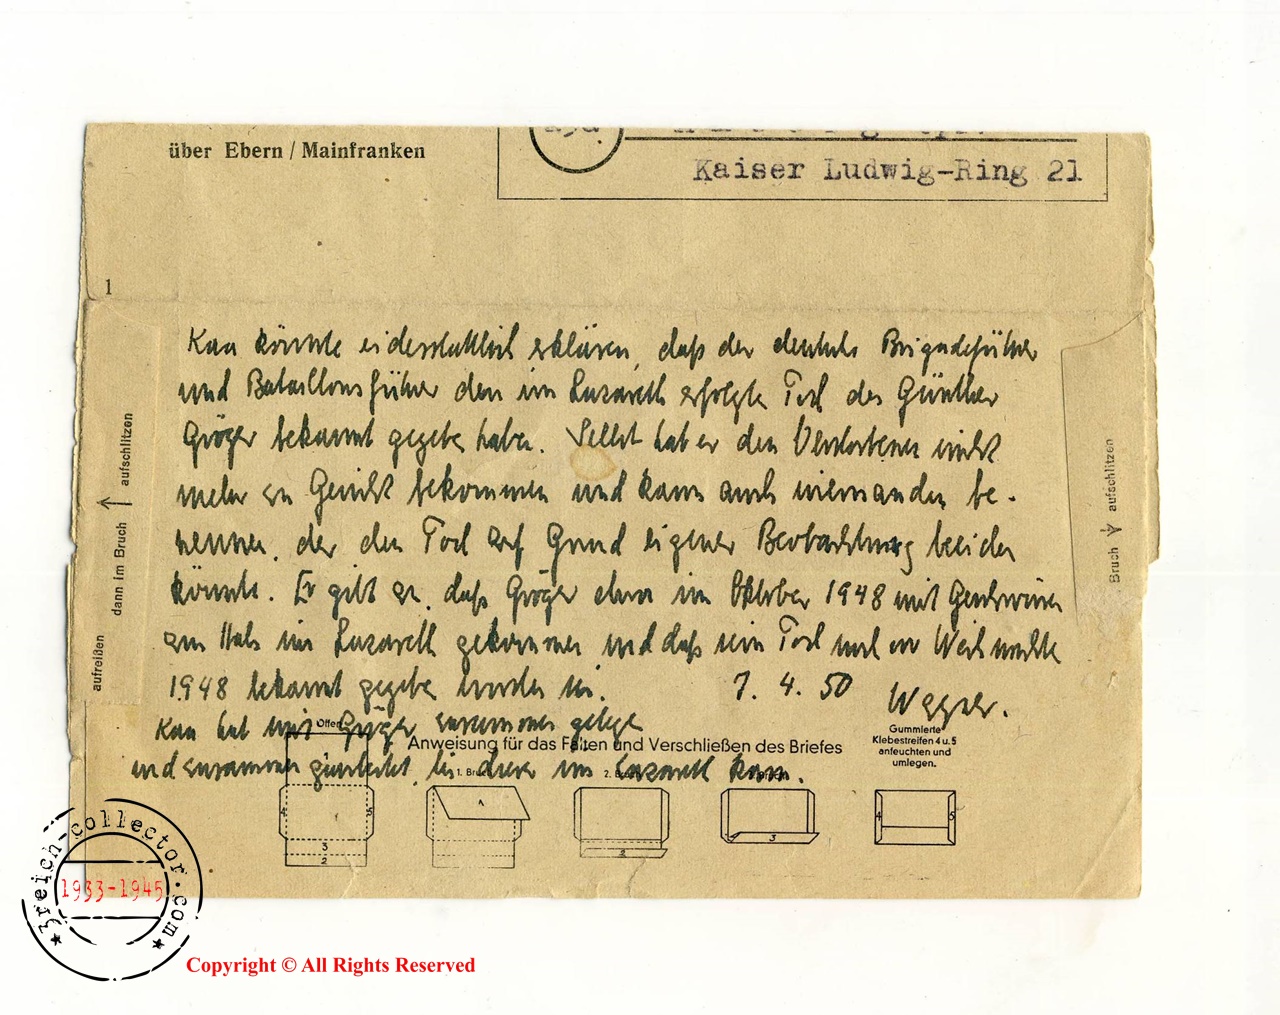 über Ebern / Mainfranken
Kaiser Ludwig-Ring 21
1
Kaa könnte eidesstattlich erklären, daß der deutsche Brigadeführer
und Bataillonsführer den im Lazarett erfolgte Tod des Günther
Gröger bekannt gegebe habe. Selbst hat er den Verstorbenen nicht
mehr zu Gesicht bekommen und kann auch niemanden be-
nennen, der den Tod auf Grund eigener Beobachtung beeiden
könnte. Er gibt an, daß Gröger etwa im Oktober 1948 mit Geschwüren
am Hals ins Lazarett gekommen und daß sein Tod noch vor Weihnachte
1948 bekannt gegebe worden sei.
7. 4. 50
Kaa hat mit Gröger zusammen gelege
und zusammen gearbeitet, bis dieser ins Lazarett kam.
aufreißen dann im Bruch aufschlitzen
Bruch aufschlitzen
Offen
Anweisung für das Falten und Verschließen des Briefes
Gummierte
Klebestreifen 4 u. 5
anfeuchten und
umlegen.
1. Bruch
2.
4 5 3 2
1
2
3
4 5
3reich-collector.com
1933-1945
Copyright © All Rights Reserved